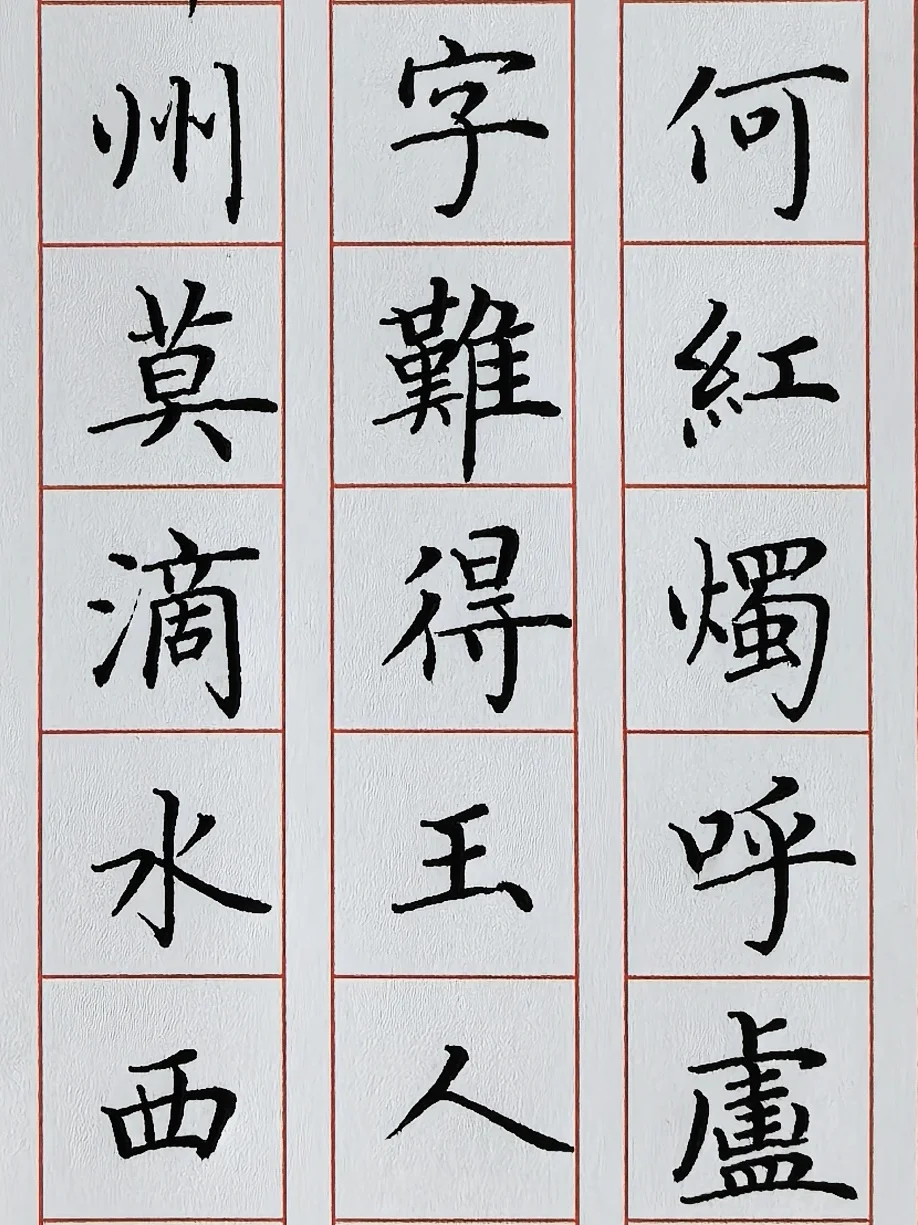 何紅燭呼盧
字難得玉人
州莫滴水西